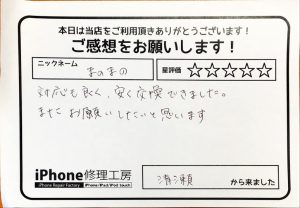 本日は当店をご利用頂きありがとうございます！
ご感想をお願いします！
ニックネーム まのまの
星評価 ☆☆☆☆☆
対応も良く、安く交換できました。
またお願いしたいと思います
iPhone修理工房
iPhone Repair Factory iPhone/iPad/iPod touch
清瀬 から来ました